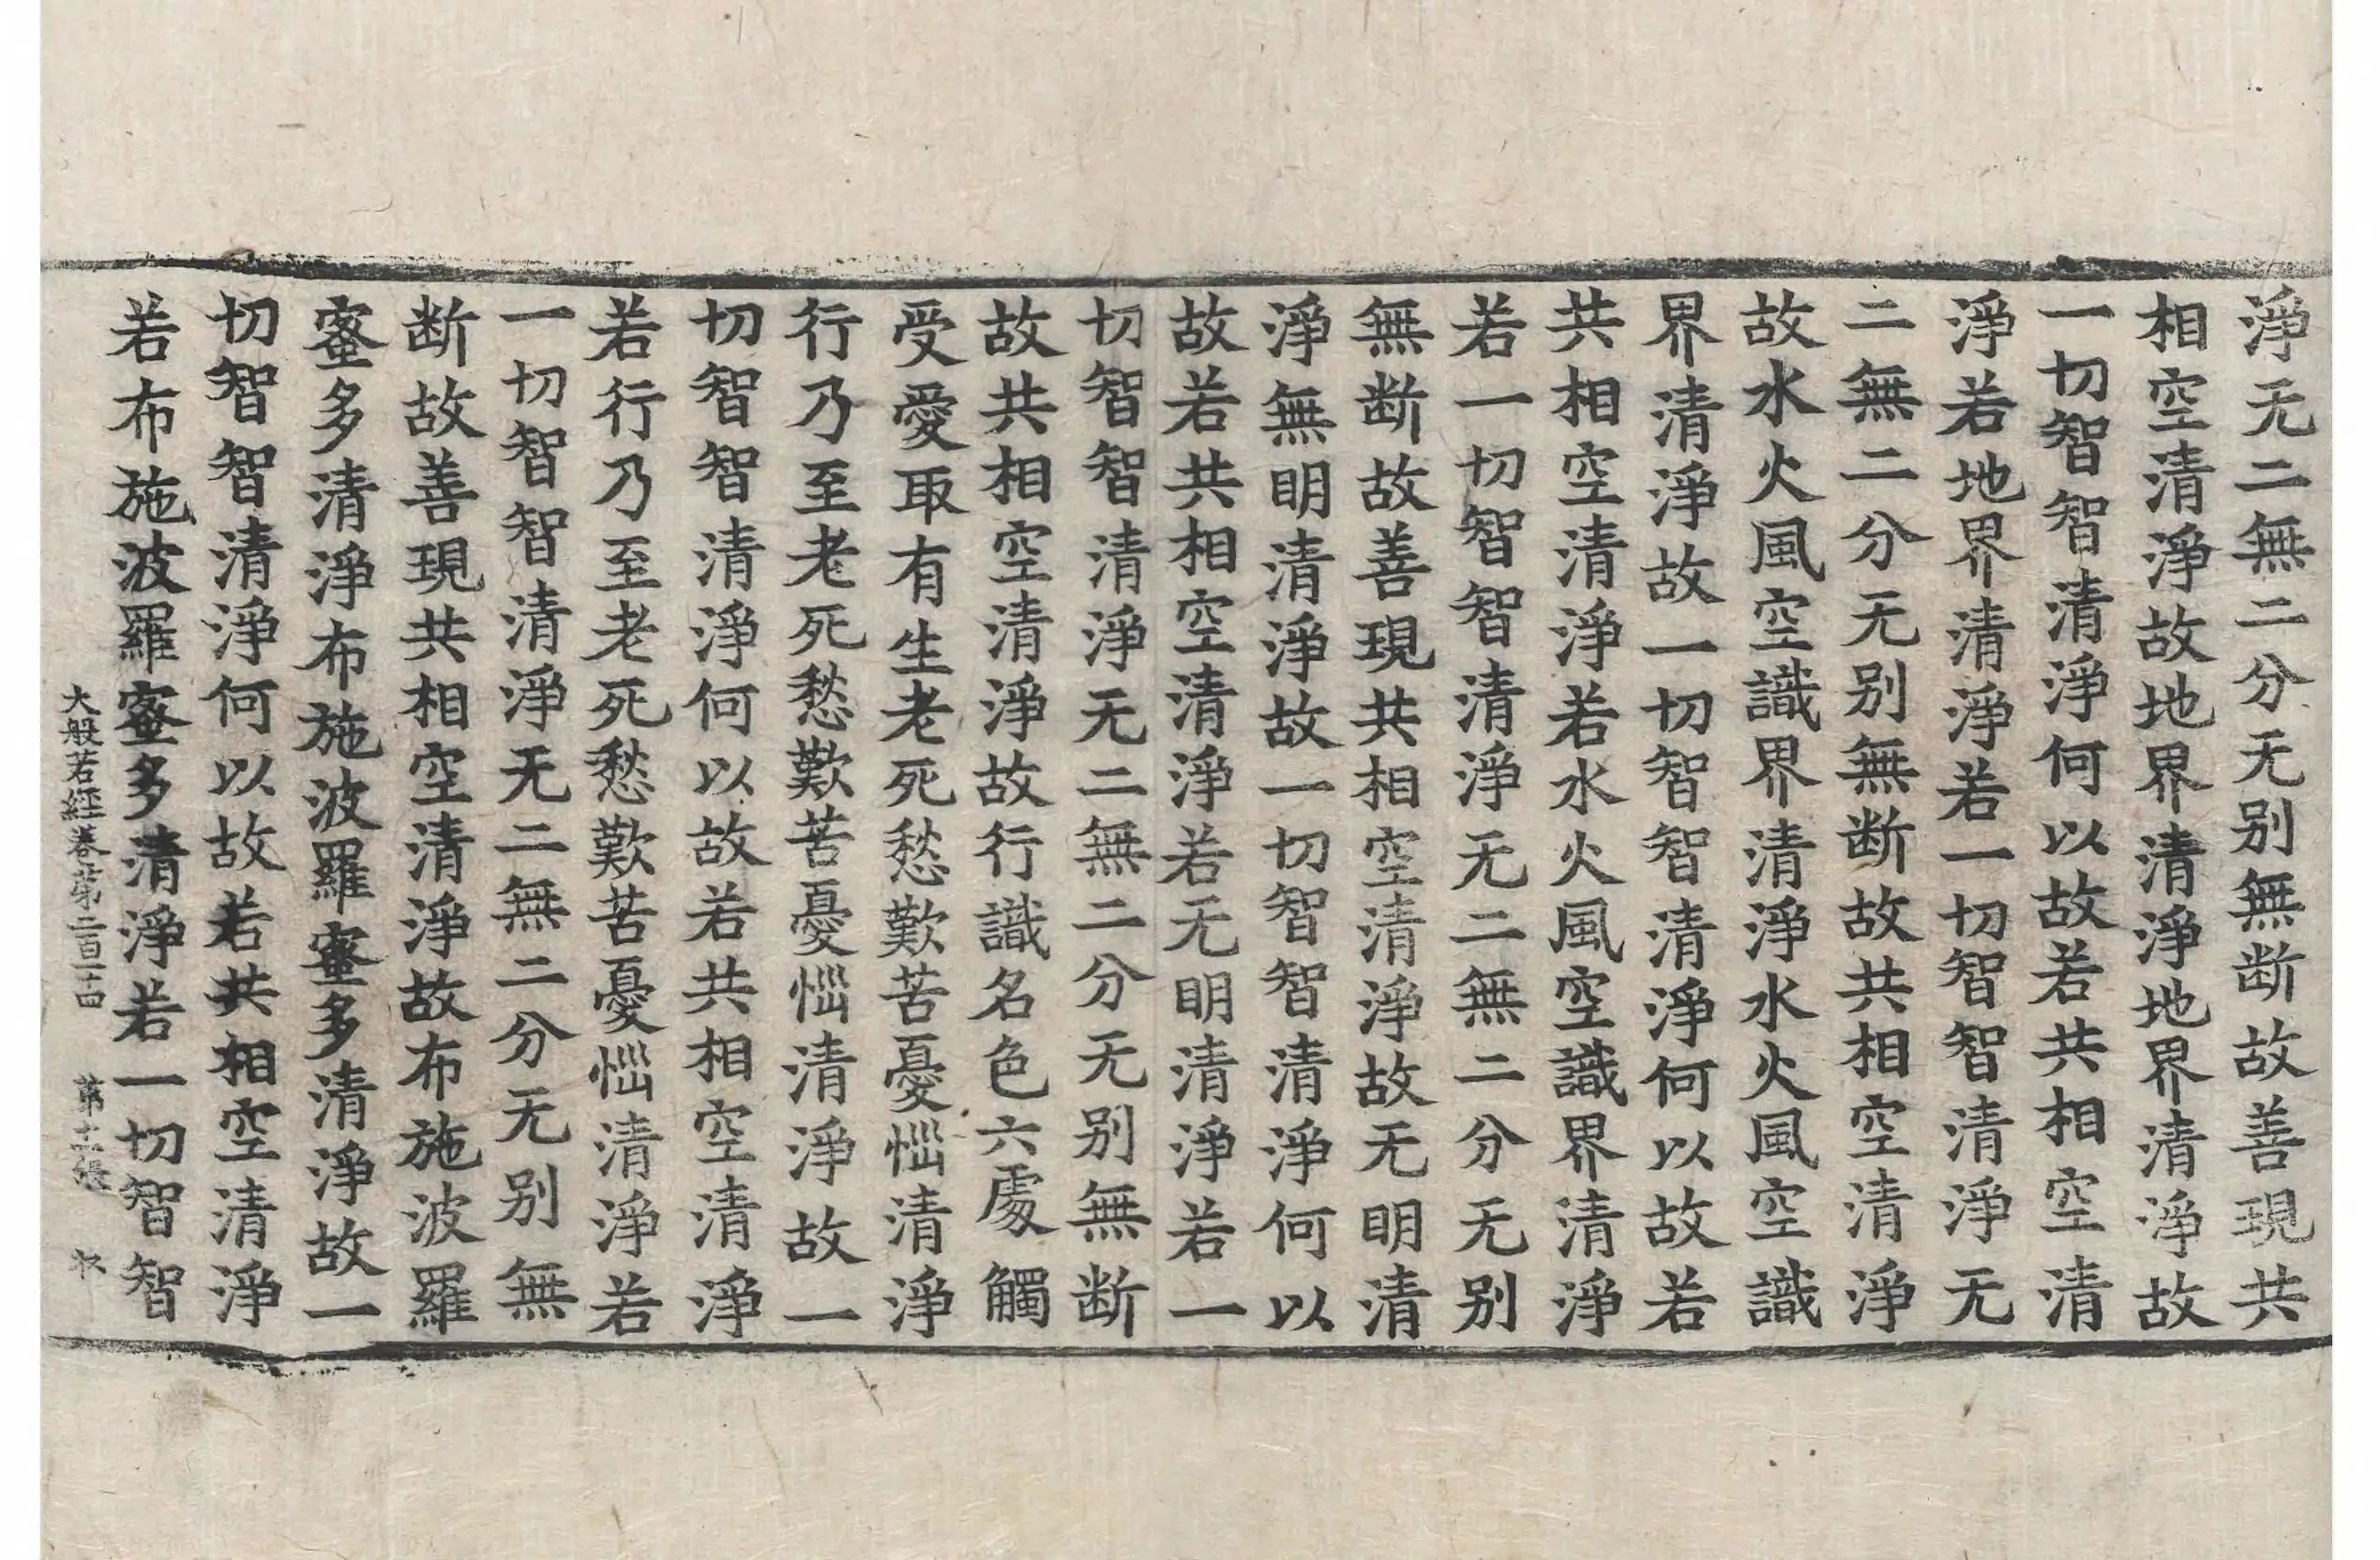 淨无二無二分无别無断故善現共
相空清淨故地界清淨地界清淨故
一切智智清淨何以故若共相空清
淨若地界清淨若一切智智清淨无
二無二分无别無断故共相空清淨
故水火風空識界清淨水火風空識
界清淨故一切智智清淨何以故若
共相空清淨若水火風空識界清淨
若一切智智清淨无二無二分无别
無断故善現共相空清淨故无明清
淨無明清淨故一切智智清淨何以
故若共相空清淨若无明清淨若一
切智智清淨无二無二分无别無断
故共相空清淨故行識名色六處觸
受愛取有生老死愁歎苦憂惱清淨
行乃至老死愁歎苦憂惱清淨故一
切智智清淨何以故若共相空清淨
若行乃至老死愁歎苦憂惱清淨若
一切智智清淨无二無二分无别無
断故善現共相空清淨故布施波羅
蜜多清淨布施波羅蜜多清淨故一
切智智清淨何以故若共相空清淨
若布施波羅蜜多清淨若一切智智
大般若経卷第二百一十四 第張